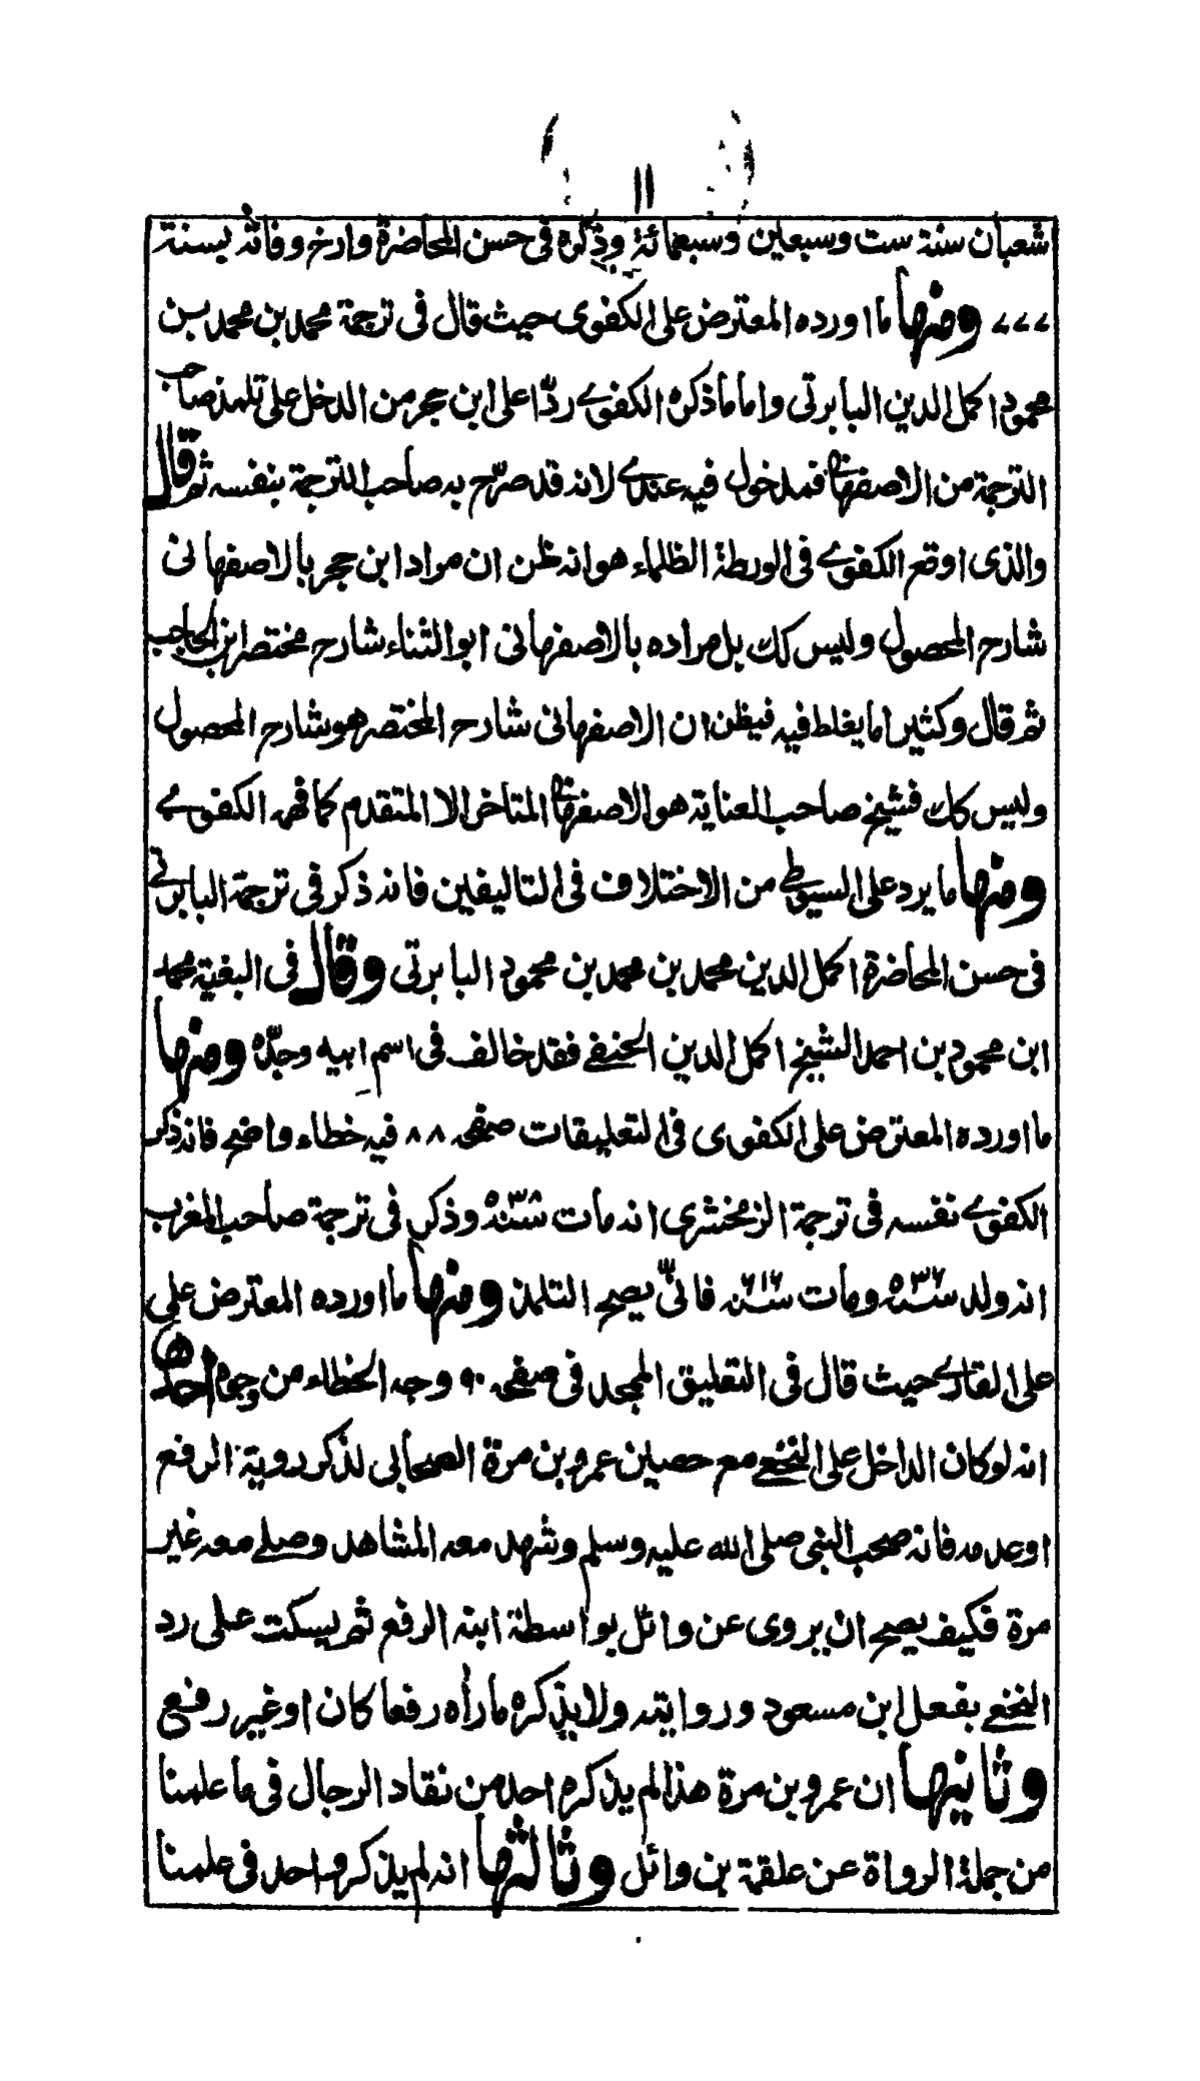 ١١
شعبان سنة ست وسبعين وسبعمائة وذكره فى حسن المحاضرة وارخ وفاته بسنة
٧٧٧ ومنها ما اورده المعترض على الكفوى حيث قال فى ترجمة محمد بن محمد بسن
محمود اكمل الدين البابرتى واما ما ذكره الكفوے ردّا على ابن حجر من الدخل على تلمذ صاحب
الترجمة من الاصفهانى فمدخول فيه عندے لانه قد صرّح به صاحب الترجمة بنفسه ثم قال
والذى اوقع الكفوے فى الورطة الظلماء هو انه ظن ان مراد ابن حجر بالاصفهانى
شارح المحصول وليس كك بل مراده بالاصفهانى ابو الثناء شارح مختصر ابن الحاجب
ثم قال وكثيرا ما يغلط فيه فيظن ان الاصفهانى شارح المختصر هو شارح المحصول
وليس كك فشيخ صاحب العناية هو الاصفهانى المتاخر لا المتقدم كما فهمه الكفوے
ومنها ما يرد على السيوطے من الاختلاف فى التاليفين فانه ذكر فى ترجمة البابرتے
فى حسن المحاضرة اكمل الدين محمد بن محمد بن محمود البابرتى وقال فى البغية محمد
ابن محمود بن احمد الشيخ اكمل الدين الحنفے فقد خالف فى اسم ابيه وجدّه ومنها
ما اورده المعترض على الكفوى فى التعليقات صفحه ٨٨ فيه خطاء واضح فانه ذكر
الكفوے نفسه فى ترجمة الزمخشرى انه مات سنة ٥٣٨ وذكر فى ترجمة صاحب المغرب
انه ولد سنة ٥٣٦ ومات سنة ٦١٦ فانّىٰ يصح التلمذ ومنها ما اورده المعترض على
على القارے حيث قال فى التعليق الممجد فى صفحه ٩٠ وجه الخطاء من وجوه احدها
انه لو كان الداخل على النخعے مع حصين عمرو بن مرة الصحابى لذكر روية الرفع
او عدمه فانه صحب النبى صلى الله عليه وسلم وشهد معه المشاهد وصلے معه غير
مرة فكيف يصح ان يروى عن وائل بواسطة ابنه الرفع ثم يسكت على رد
النخعے بفعل ابن مسعود وروايته ولا يذكره ما رأه رفعا كان او غير رفع
وثانيها ان عمرو بن مرة هذا لم يذكره احد من نقاد الرجال فى ما علمنا
من جملة الرواة عن علقمة بن وائل وثالثها انه لم يذكره احد فى علمنا